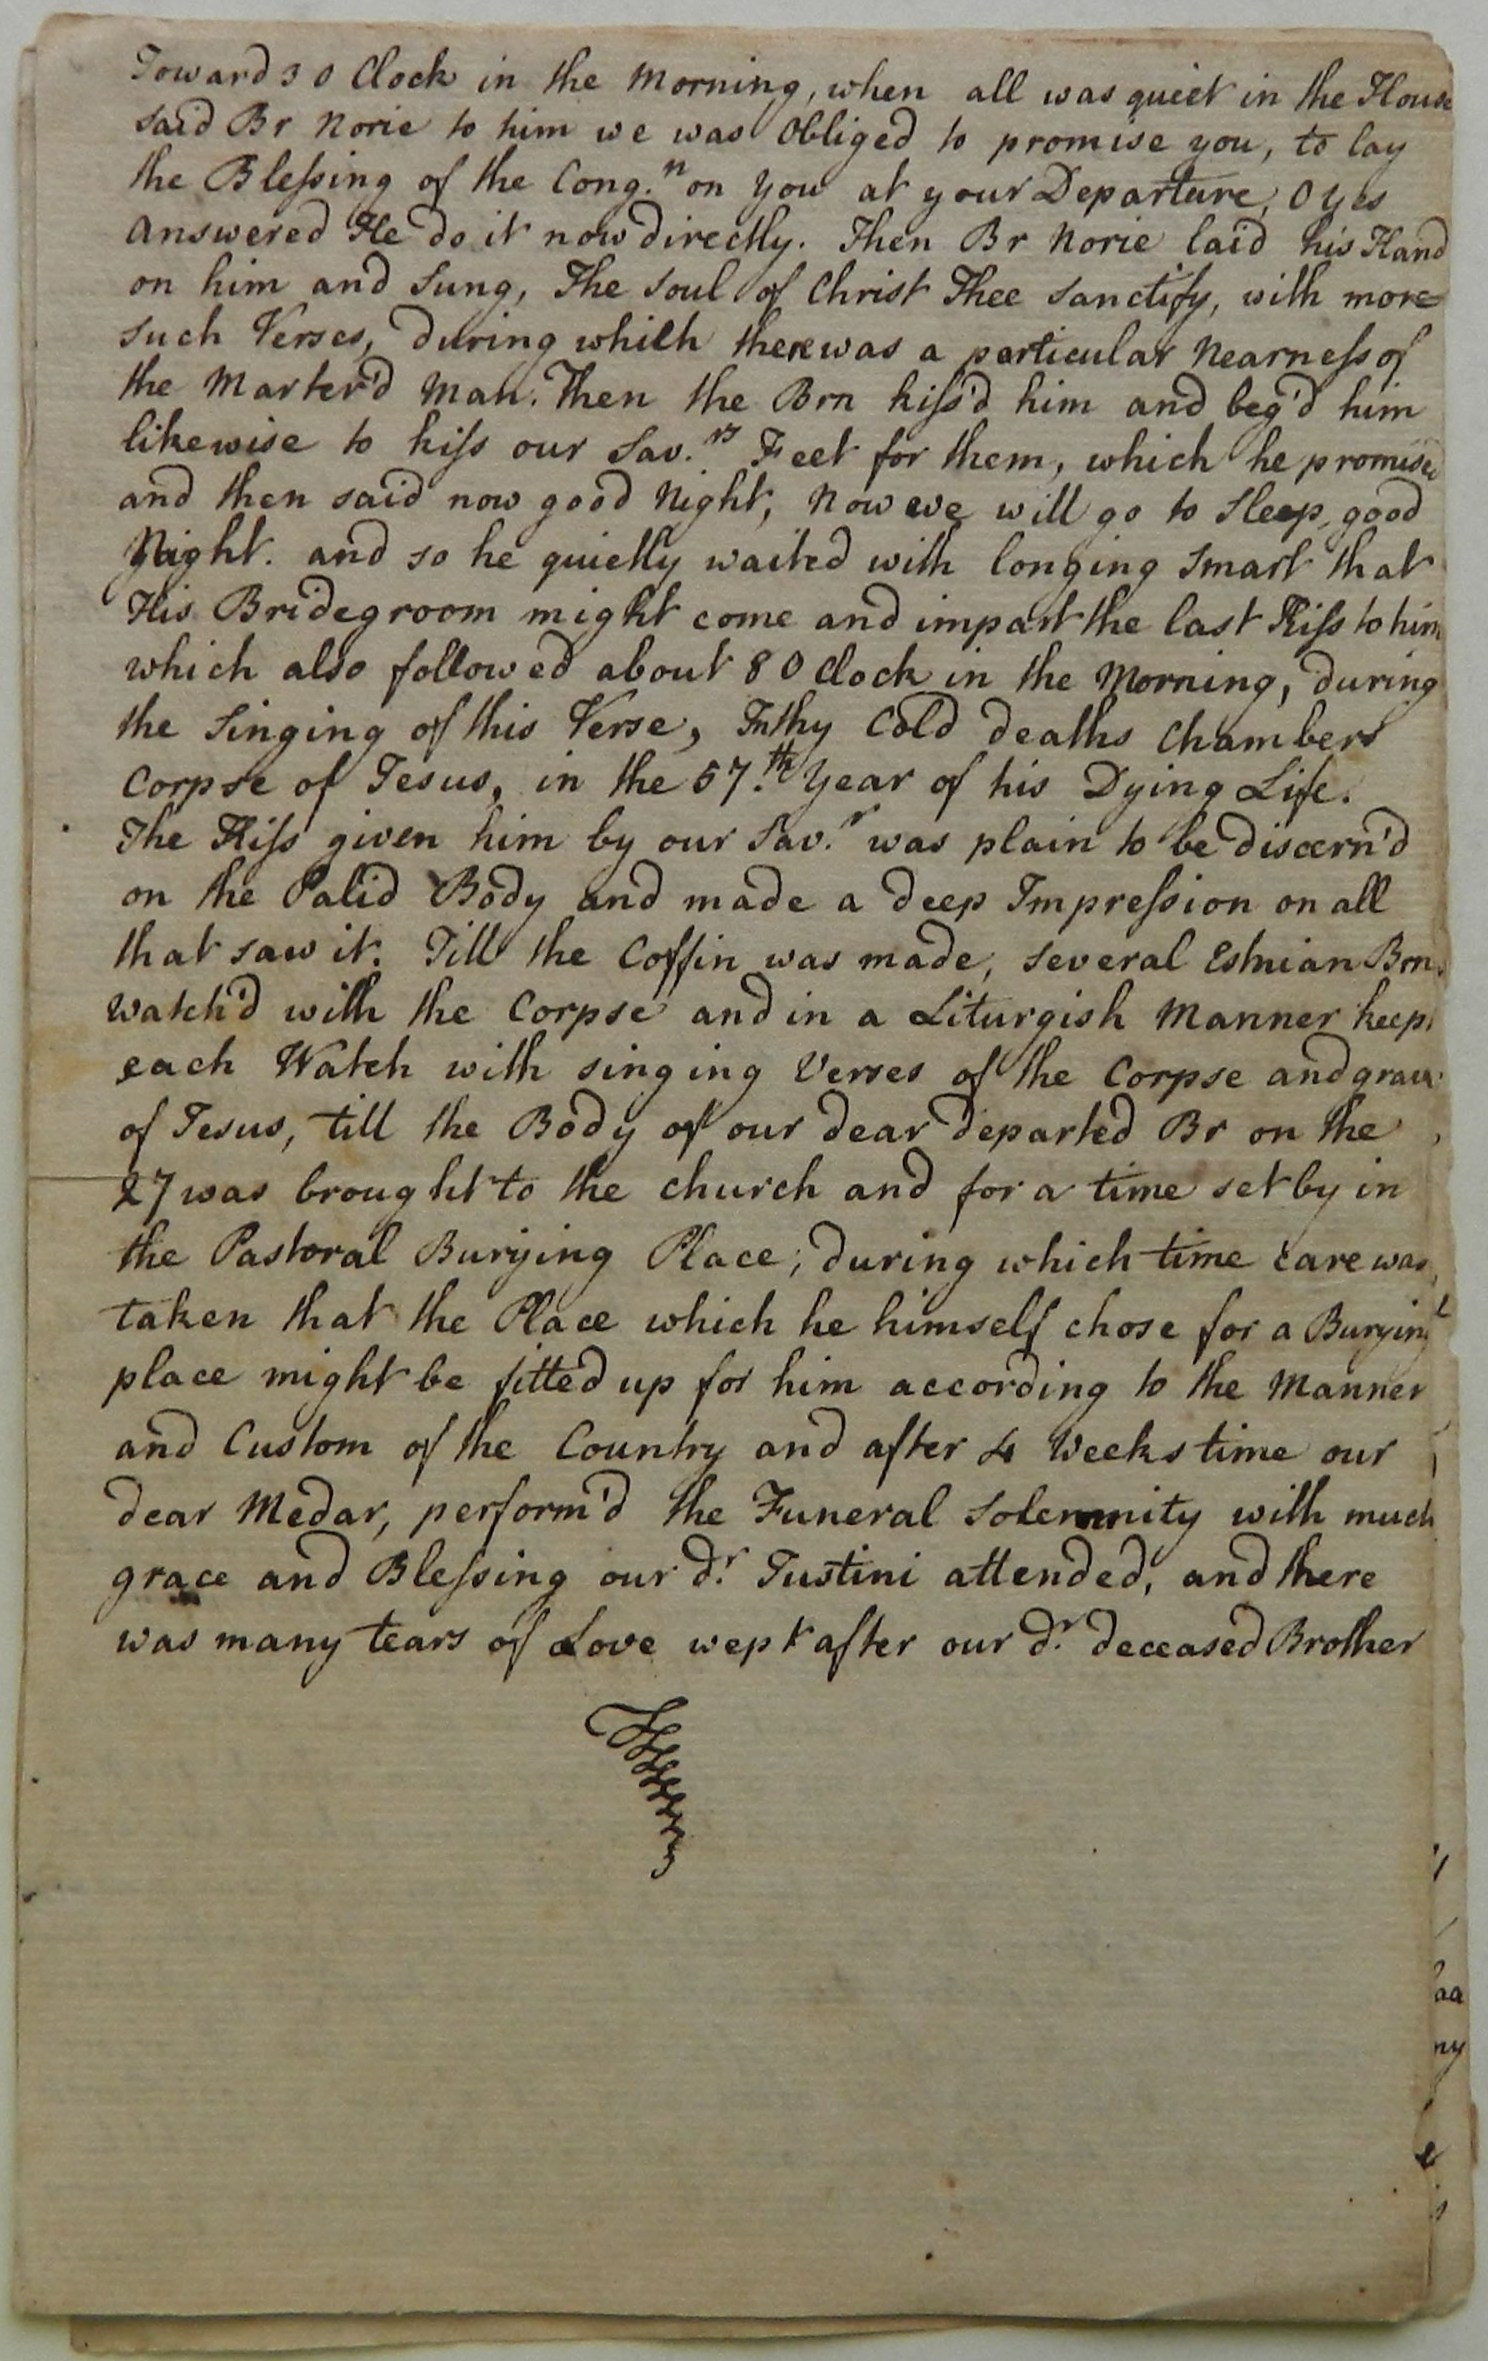 Toward 3 O Clock in the Morning, when all was quiet in the House
said Br Norie to him we was Obliged to promise you, to lay
the Blessing of the Cong.n on You at your Departure, O yes
answered He do it now directly. Then Br Norie laid his Hand
on him and Sung, The Soul of Christ Thee Sanctify, with more
such Verses, during which there was a particular Nearness of
the Marter'd Man. Then the Brn kiss'd him and beg'd him
likewise to kiss our Sav.rs Feet for them, which he promised
and then said now good Night, Now we will go to Sleep, good
Night. and so he quietly waited with longing Smart that
His Bridegroom might come and impart the last Kiss to him
which also followed about 8 O Clock in the Morning, during
the Singing of this Verse, In thy Cold deaths Chambers
Corpse of Jesus, in the 57.th Year of his Dying Life.
The Kiss given him by our Sav.r was plain to be discern'd
on the Palid Body and made a deep Impression on all
that saw it. Till the Coffin was made, several Estnian Brn
watch'd with the Corpse and in a Liturgish Manner keept
each Watch with singing Verses of the Corpse and grave
of Jesus, till the Body of our dear departed Br on the
27 was brought to the church and for a time set by in
the Pastoral Burying Place, during which time care was
taken that the Place which he himself chose for a Burying
place might be fitted up for him according to the Manner
and Custom of the Country and after 4 Weeks time our
dear Medar, perform'd the Funeral Solemnity with much
grace and Blessing our d.r Justini attended, and there
was many tears of Love wept after our d.r deceased Brother